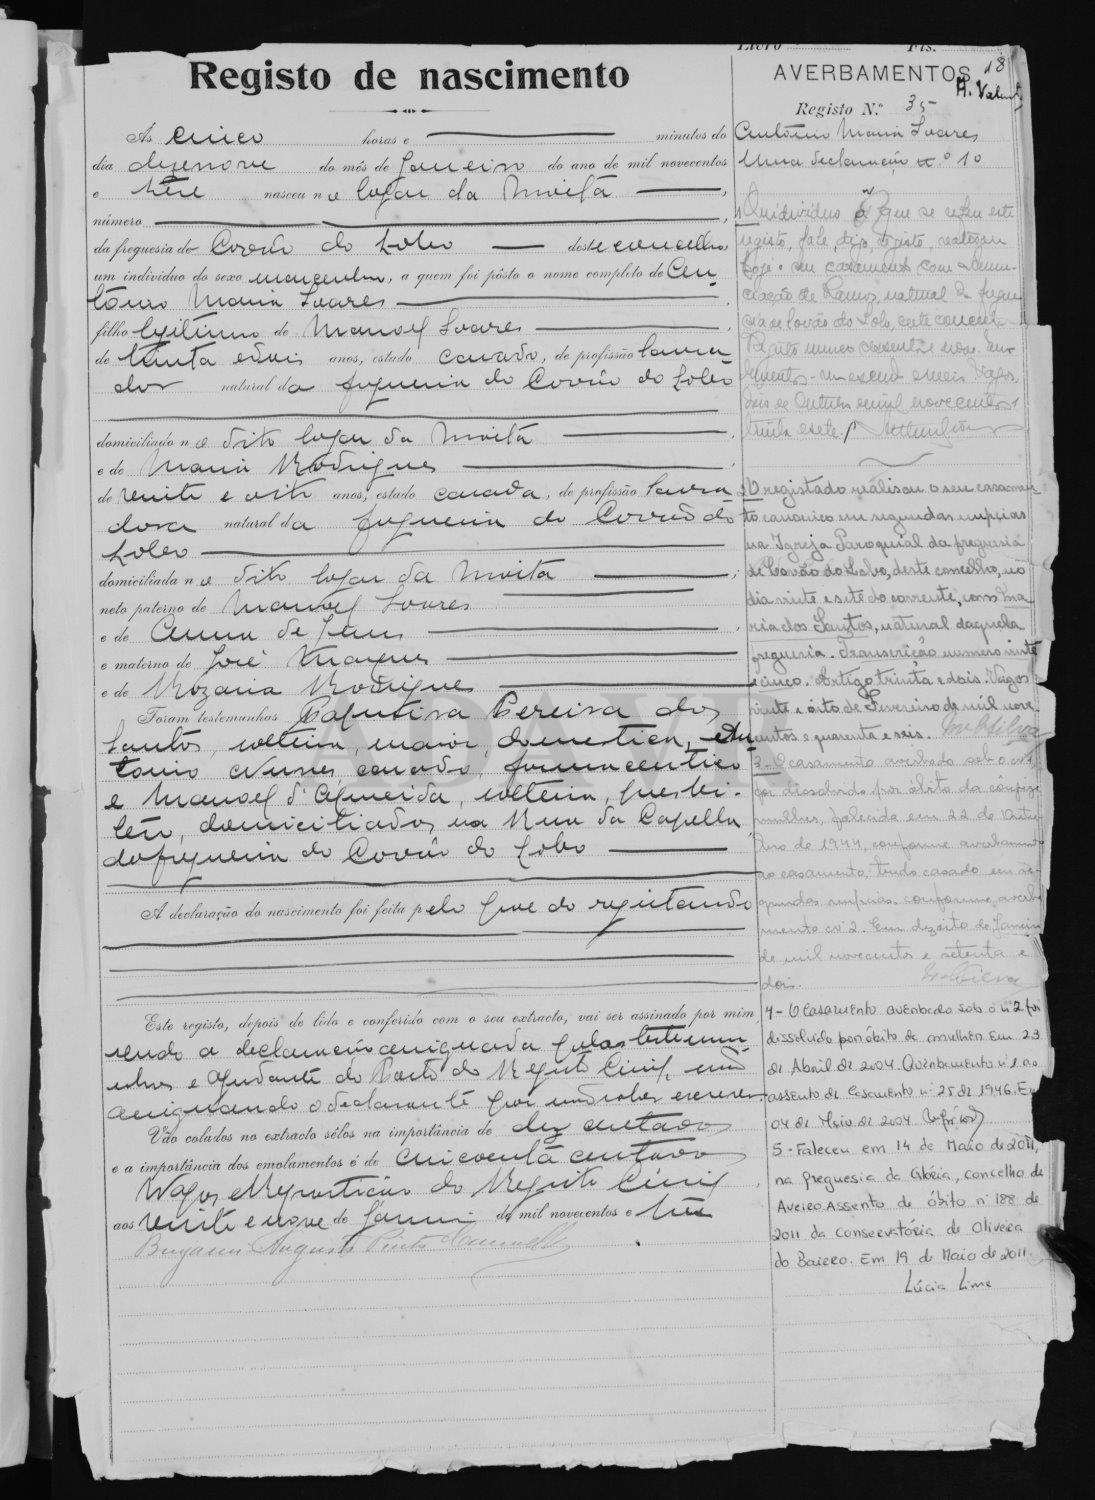 Livro Fls. 18
Registo de nascimento
Às cinco horas e minutos do
dia dezenove do mês de Janeiro do ano de mil novecentos
e treze nasceu no logar da Moita
número
da freguesia de Covão do Lobo deste concelho
um indivíduo do sexo masculino, a quem foi pôsto o nome completo de An-
tónio Maria Soares
filho legitimo de Manoel Soares
de trinta e dois anos, estado casado, de profissão lavra-
dor natural da freguesia do Covão do Lobo
domiciliado no dito logar da Moita
e de Maria Rodrigues
de vinte e oito anos, estado casada, de profissão lavra-
dora natural da freguesia do Covão do
Lobo
domiciliada no dito logar da Moita
neto paterno de Manoel Soares
e de Anna de Jesus
e materno de José Marques
e de Rozaria Rodrigues
Foram testemunhas Baptista Pereira dos
Santos, solteira, maior, domestica, e An-
tonio Nunes, casado, farmaceutico
e Manoel d'Almeida, solteiro,
domiciliados na Rua da Capella
da freguesia do Covão do Lobo
A declaração do nascimento foi feita pelo pae do registando
Este registo, depois de lido e conferido com o seu extracto, vai ser assinado por mim
sendo a declaração assignada pelas testemu-
nhas e ajudante do Posto do Registo Civil, não
assignando o declarante por não saber escrever
Vão colados no extracto sêlos na importância de dez centavos
e a importância dos emolumentos é de cincoenta centavos
Vagos e Repartição do Registo Civil
aos vinte e nove de Janeiro de mil novecentos e treze
Augusto Pinto
AVERBAMENTOS
Registo N.º 35
António Maria Soares
Uma declaração n.º 10
1 O individuo a que se refere este
registo, realizou
hoje o seu casamento com
de Ramos, natural da fregue-
sia de Covão do Lobo, deste concelho
Vagos,
dois de Outubro de mil novecentos
trinta e sete.
2 O registado realisou o seu casamen-
to canonico em segundas nupcias
na Igreja Paroquial da freguesia
de Covão do Lobo, deste concelho, no
dia vinte e sete do corrente, com Ma-
ria dos Santos, natural daquela
freguesia. Transcrição numero vinte
e cinco. Artigo trinta e dois. Vagos
vinte e oito de Fevereiro de mil nove-
centos e quarenta e seis.
3 - O casamento averbado sob o nº 1
foi dissolvido por óbito da cônjuge
mulher, falecida em 22 de Outu-
bro de 1944, conforme averbamento
ao casamento, tendo casado em se-
gundas nupcias conforme averba-
mento nº 2. Em dezoito de Janeiro
de mil novecentos e setenta e
dois.
4 - O casamento averbado sob o nº 2 foi
dissolvido por óbito da mulher em 23
de Abril de 2004. Averbamento nº 1 ao
assento de casamento nº 25 de 1946. Em
04 de Maio de 2004
5 - Faleceu em 14 de Maio de 2011,
na freguesia da Glória, concelho de
Aveiro. Assento de óbito nº 188 de
2011 da Conservatória de Oliveira
do Bairro. Em 19 de Maio de 2011.
Lúcia Lima